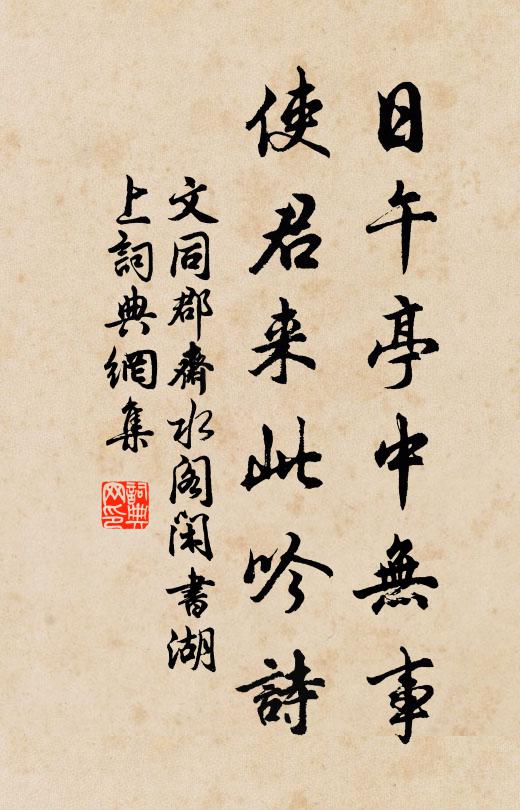 日午亭中無事
使君来此吟詩
文同郡齋水閣閑書湖
上詞典網集
詞典网印